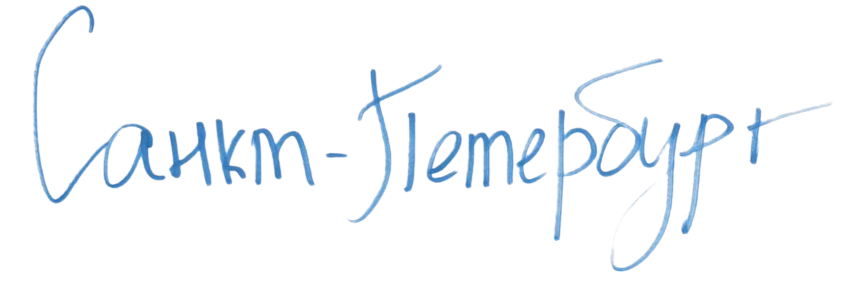 Санкт-Петербург